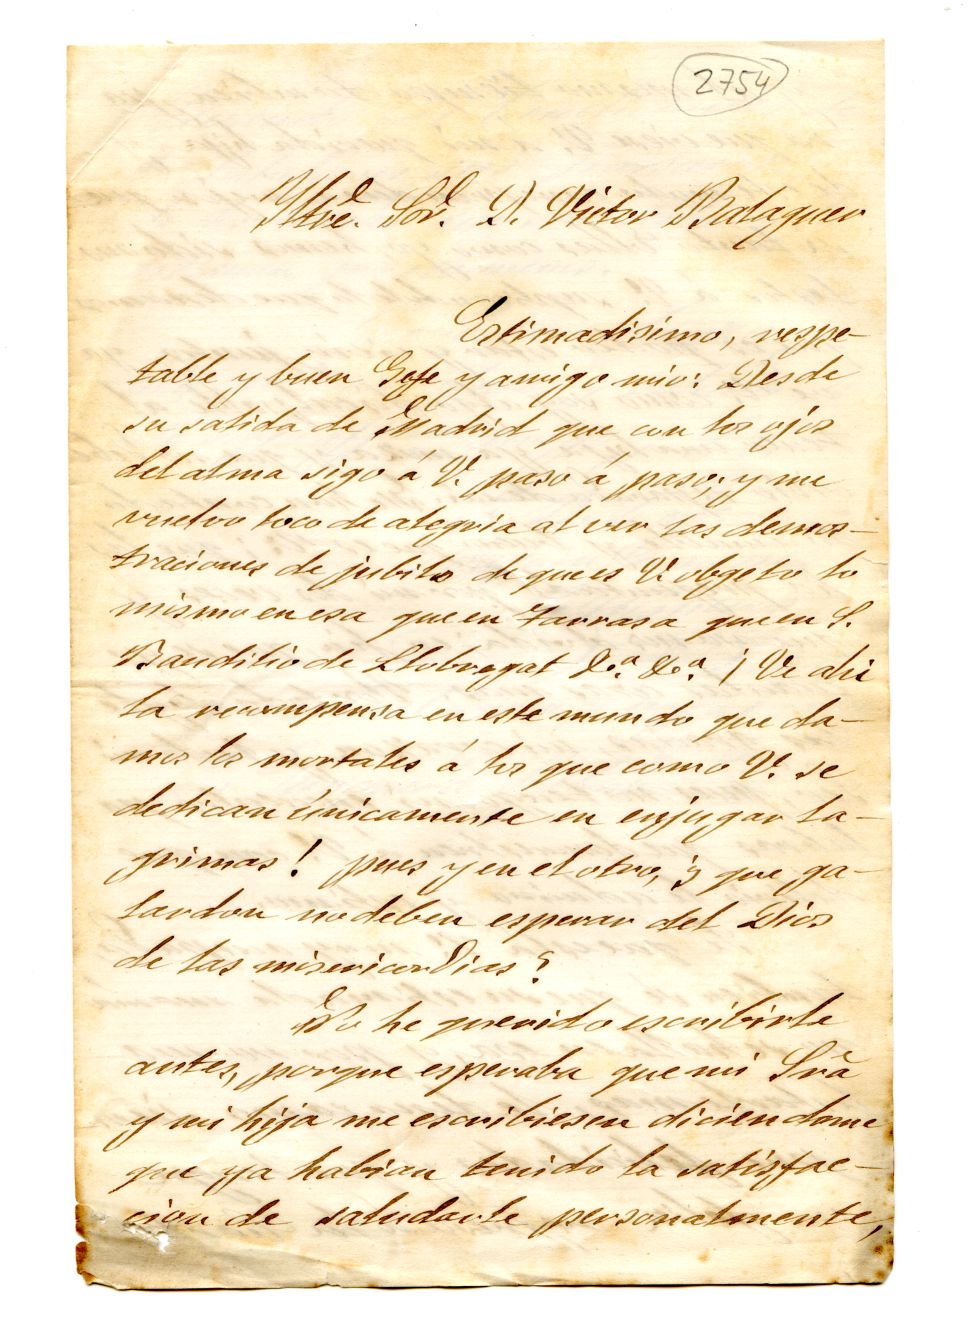 2754
Iltre. Sor. D. Victor Balaguer
Estimadisimo, respe-
table y buen Gefe y amigo mio: Desde
su salida de Madrid que con los ojos
del alma sigo á V. paso á paso; y me
vuelvo loco de alegria al ver las demos-
traciones de jubilo de que es V. objeto lo
mismo en esa que en Tarrasa que en S.
Baudilio de Llobregat &.a &.a ¡ Ve ahi
la recompensa en este mundo que da-
mos los mortales á los que como V. se
dedican únicamente en enjugar la-
grimas! pues y en el otro, ¿ que ga-
lardon no deben esperar del Dios
de las misericordias?
No he querido escribirle
antes, porque esperaba que mi Sra
y mi hija me escribiesen diciendome
que ya habian tenido la satisfac-
cion de saludarle personalmente,